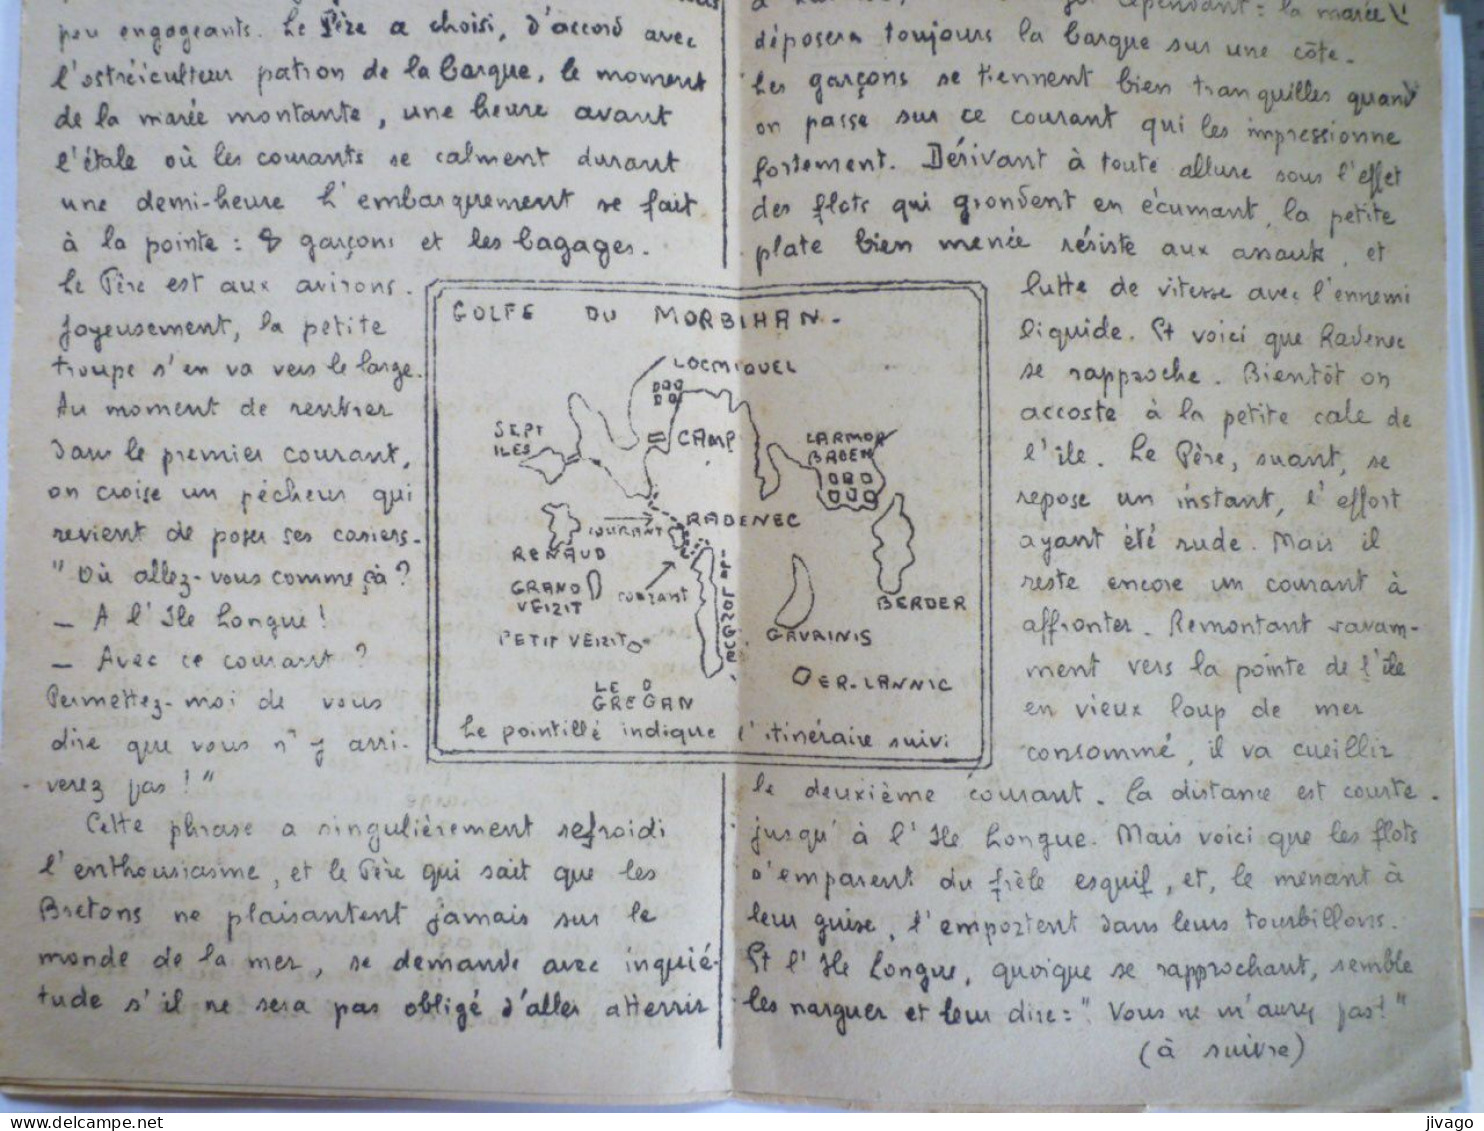 peu engageants. Le Père a choisi, d'accord avec
l'ostréiculteur patron de la barque, le moment
de la marée montante, une heure avant
l'étale où les courants se calment durant
une demi-heure L'embarquement se fait
à la pointe : 8 garçons et les bagages.
Le Père est aux avirons.
Joyeusement, la petite
troupe s'en va vers le large.
Au moment de rentrer
dans le premier courant,
on croise un pêcheur qui
revient de poser ses casiers.
"Où allez-vous comme çà ?
- A l'Ile Longue !
- Avec ce courant ?
Permettez-moi de vous
dire que vous n'y arri-
verez pas !"
Cette phrase a singulièrement refroidi
l'enthousiasme, et le Père qui sait que les
Bretons ne plaisantent jamais sur le
monde de la mer, se demande avec inquié-
tude s'il ne sera pas obligé d'aller atterrir
cependant : la marée
déposera toujours la barque sur une côte.
Les garçons se tiennent bien tranquilles quand
on passe sur ce courant qui les impressionne
fortement. Dérivant à toute allure sous l'effet
des flots qui grondent en écumant, la petite
plate bien menée résiste aux assauts, et
lutte de vitesse avec l'ennemi
liquide. Et voici que Radenec
se rapproche. Bientôt on
accoste à la petite cale de
l'île. Le Père, suant, se
repose un instant, l'effort
ayant été rude. Mais il
reste encore un courant à
affronter. Remontant savam-
ment vers la pointe de l'île
en vieux loup de mer
consommé, il va cueillir
le deuxième courant. La distance est courte
jusqu'à l'Ile Longue. Mais voici que les flots
s'emparent du frêle esquif, et, le menant à
leur guise, l'emportent dans leurs tourbillons.
Et l'Ile Longue, quoique se rapprochant, semble
les narguer et leur dire : "Vous ne m'aurez pas !"
(à suivre)
GOLFE DU MORBIHAN -
LOCMIQUEL
SEPT
ILES
CAMP
LARMOR
BADEN
RADENEC
COURANT
RENAUD
GRAND
VEIZIT
COURANT
BERDER
GAVRINIS
PETIT VEIZIT
ER-LANNIC
LE
GREGAN
Le pointillé indique l'itinéraire suivi
jivago